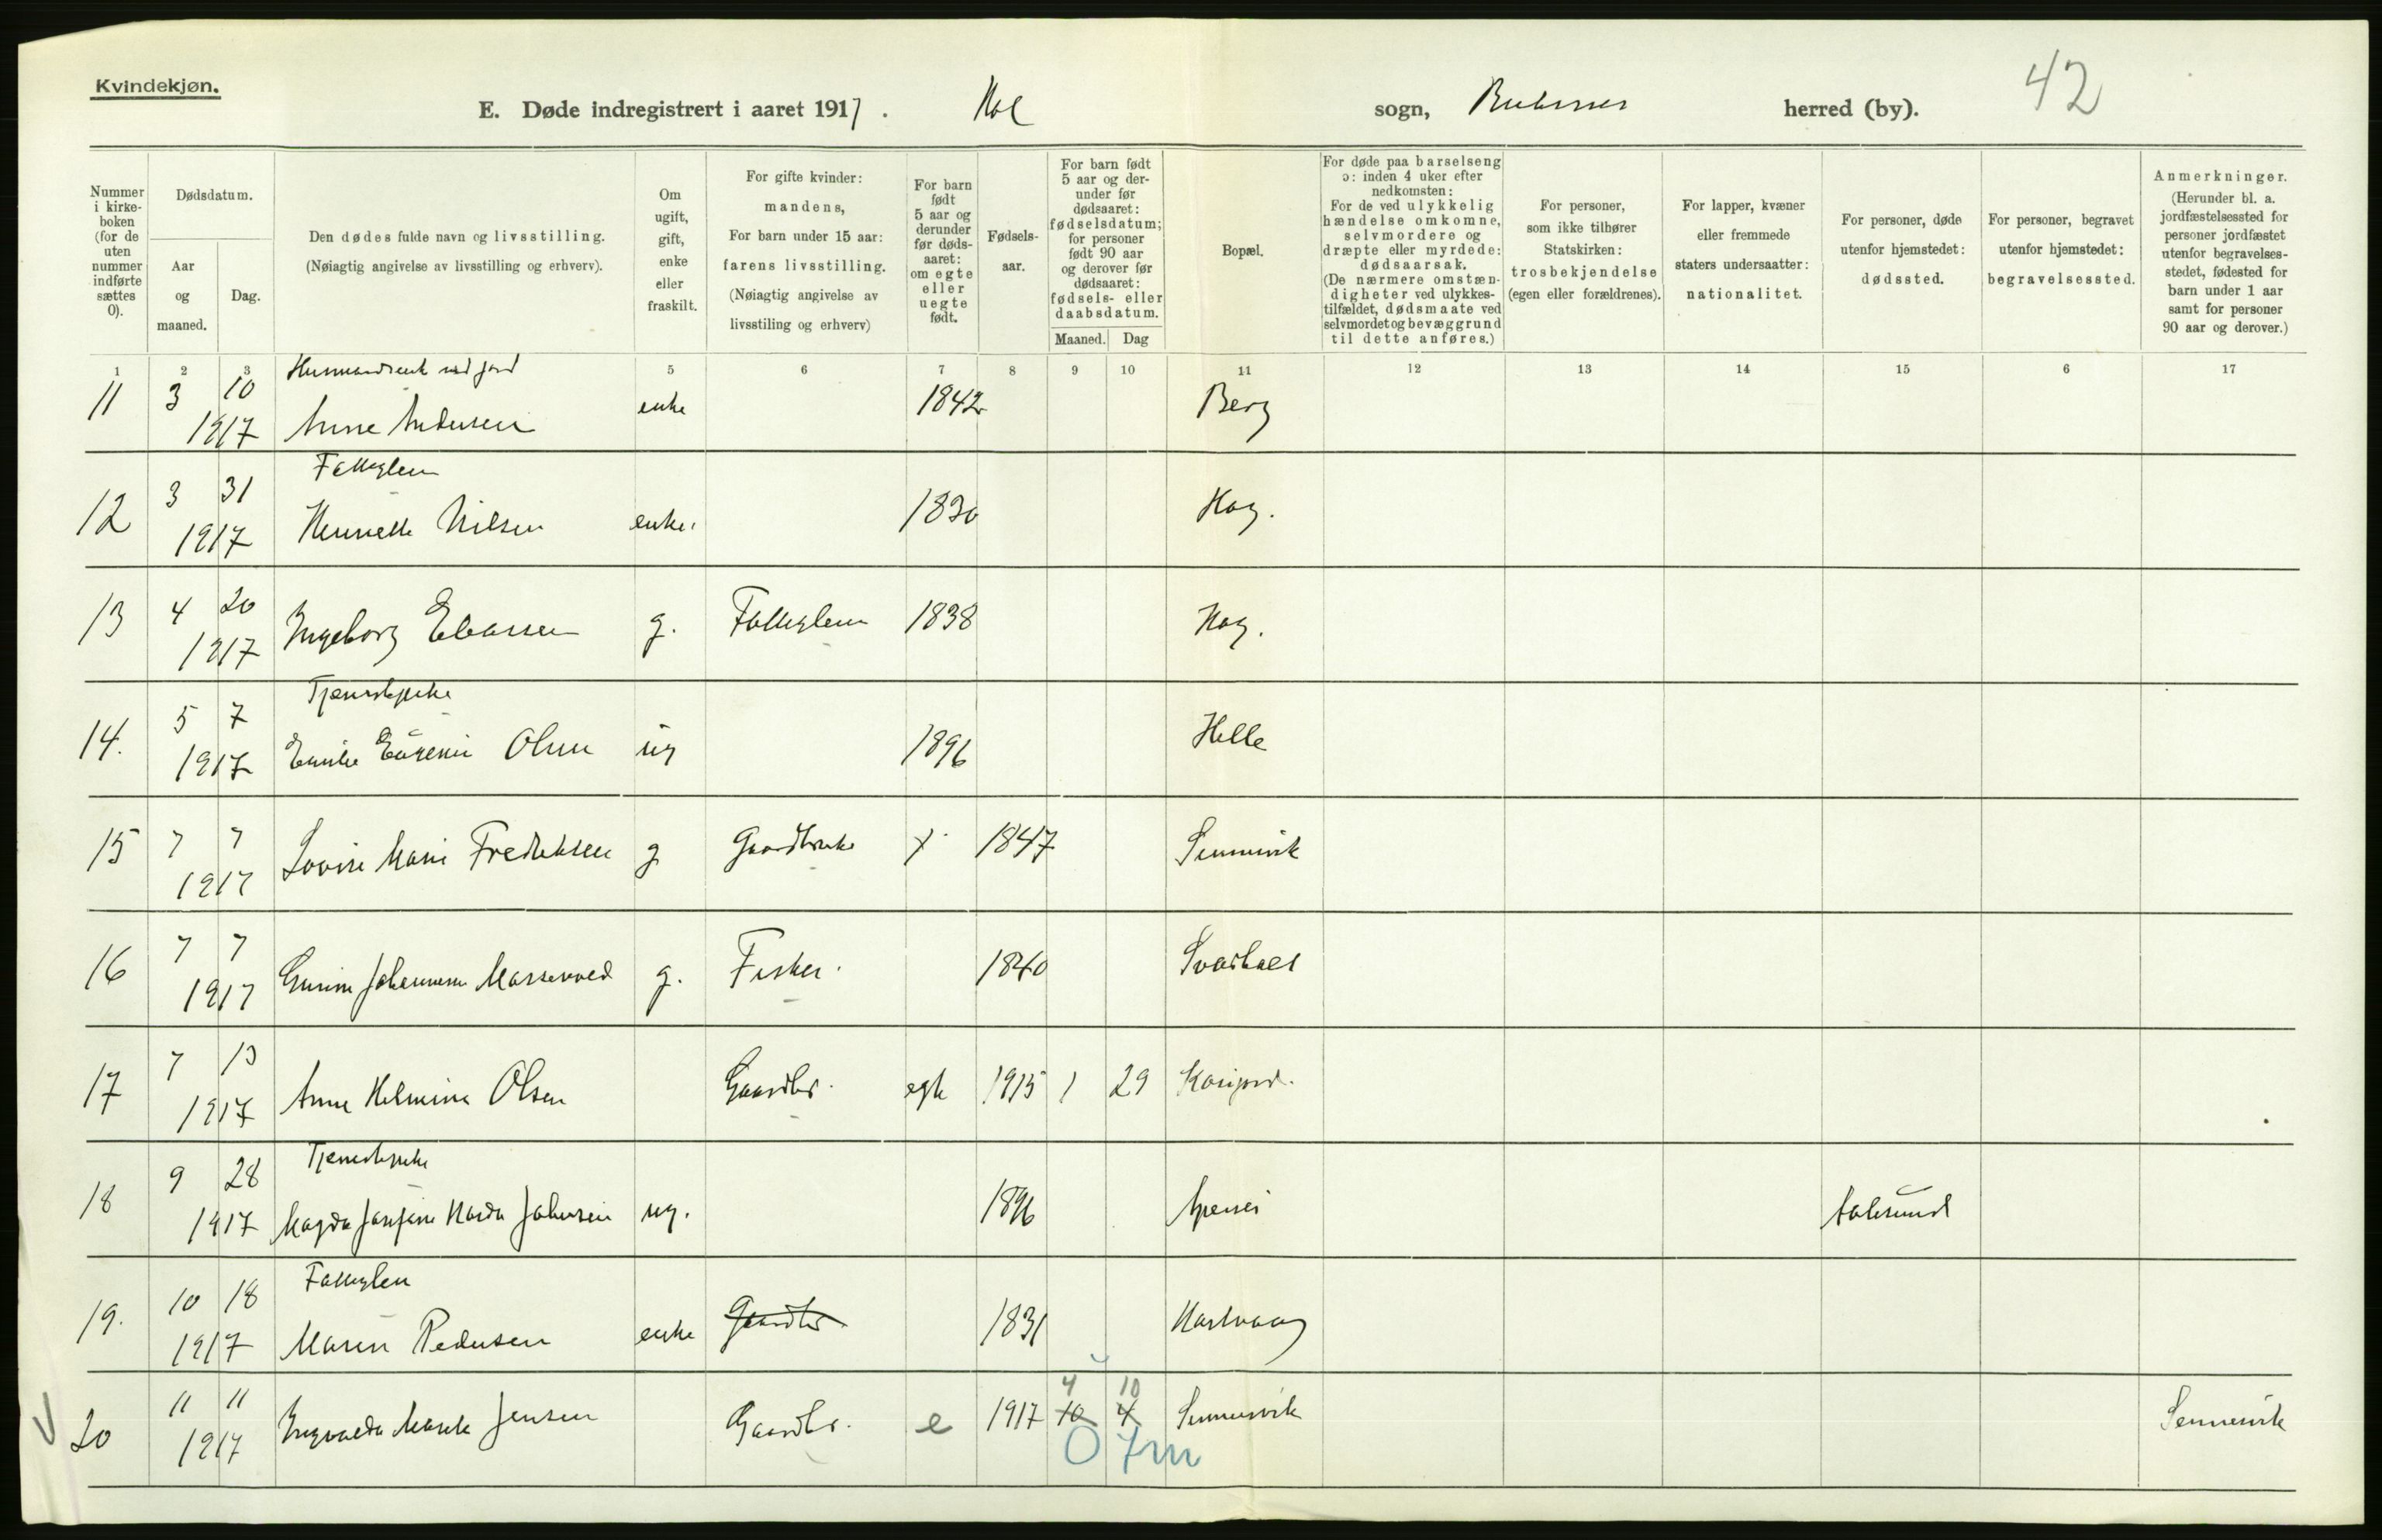 Kvindekjøn.
42
E. Døde indregistrert i aaret 1917. Hol sogn, Buksnes herred (by).
Nummer i kirke-boken (for de uten nummer indførte sættes 0).
Dødsdatum.
Aar og maaned.
Dag.
Den dødes fulde navn og livsstilling.
(Nøiagtig angivelse av livsstilling og erhverv).
Om ugift, gift, enke eller fraskilt.
For gifte kvinder:
mandens,
For barn under 15 aar:
farens livsstilling.
(Nøiagtig angivelse av
livsstiling og erhverv)
For barn født 5 aar og derunder før døds-aaret: om egte eller uegte født.
Fødsels-aar.
For barn født
5 aar og der-
under før
dødsaaret:
fødselsdatum;
for personer
født 90 aar
og derover før
dødsaaret:
fødsels- eller
daabsdatum.
Maaned. Dag
Bopæl.
For døde paa barselseng
ɔ: inden 4 uker efter
nedkomsten:
For de ved ulykkelig
hændelse omkomne,
selvmordere og
dræpte eller myrdede:
dødsaarsak.
(De nærmere omstæn-
digheter ved ulykkes-
tilfældet, dødsmaate ved
selvmordet og bevæggrund
til dette anføres.)
For personer,
som ikke tilhører
Statskirken:
trosbekjendelse
(egen eller forældrenes).
For lapper, kvæner
eller fremmede
staters undersaatter:
nationalitet.
For personer, døde
utenfor hjemstedet:
dødssted.
For personer, begravet
utenfor hjemstedet:
begravelsessted.
Anmerkninger.
(Herunder bl. a.
jordfæstelsessted for
personer jordfæstet
utenfor begravelses-
stedet, fødested for
barn under 1 aar
samt for personer
90 aar og derover.)
1 2 3 5 6 7 8 9 10 11 12 13 14 15 6 17
Husmandsenke med jord
11 3 10 1917 Anne Andersen enke 1842 Berg
Fattiglem
12 3 31 1917 Nilsen enke. 1830 Hag.
13 4 20 1917 Ingeborg Eliassen g. Fattiglem 1838 Hag.
Tjenestepike
14. 5 7 1917 Emilie Eugenie Olsen ug 1896 Helle
15 7 7 1917 Lovise Marie Fredriksen g Gaardbruker 1847 Sennesvik
16 7 7 1917 g. Fisker. 1840
17 7 13 1917 Anne Helmine Olsen Gaardbr. egte 1915 1 29
Tjenestepike
18 9 28 1917 Magda Johnsen ug. 1896 Aalesund
Fattiglem
19. 10 18 1917 Maren Pedersen enke Gaardbr. 1831 Hartvaag
4 10
20 11 11 1917 Ingvalda Jensen Gaardbr. e 1917 10 4 Sennesvik Sennesvik
0 7m